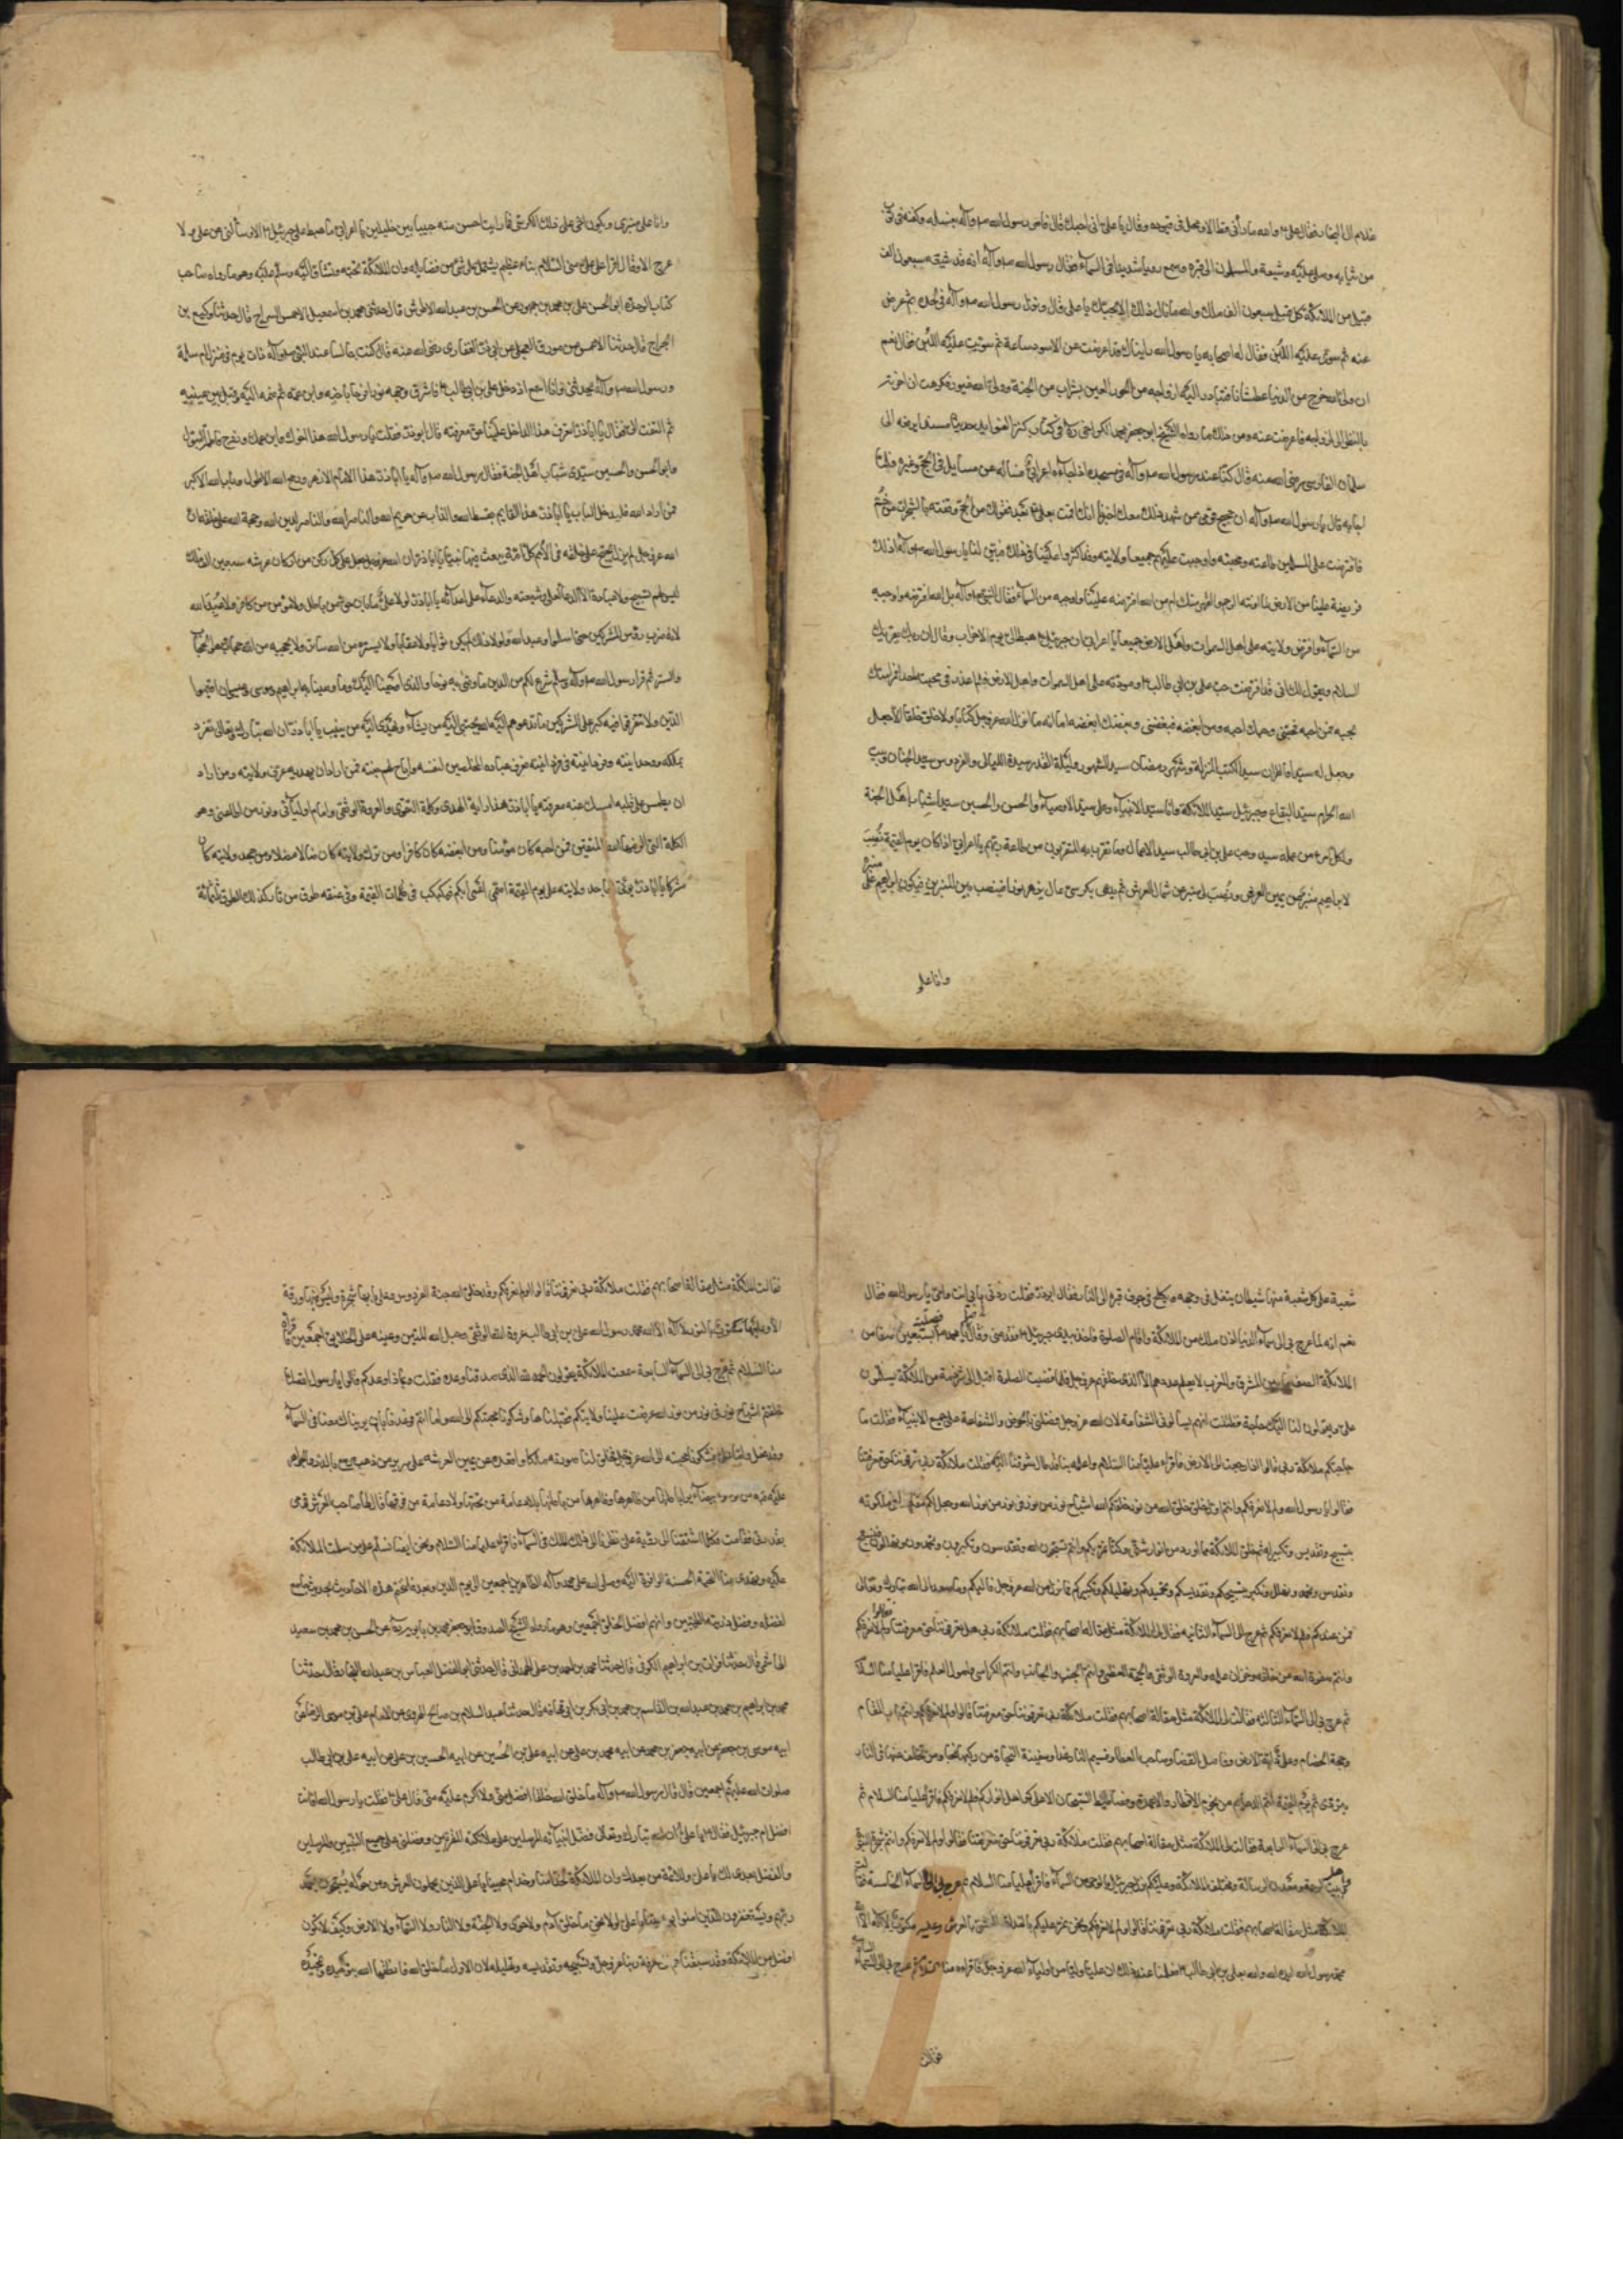 غلام ال النجار فقال علي والله ما رأني قط الا وحجل في قيوده وقال يا علي اني احبك قال فامر رسول الله صلوآله بغسله وكفنه في ثوب
من ثيابه وصلى عليه وشيعه والمسلمون الى قبره وسمع دويا شديدا في السماء فقال رسول الله صلوآله انه قد شيعه سبعون الف
قبيل من الملائكة كل قبيل سبعون الف ملك والله ما نال ذلك الا بحبك يا علي قال ونزل رسول الله صلوآله في لحده ثم عرض
عنه ثم سوى عليه اللبن فقال له اصحابه يا رسول الله رايناك قد اعرضت عن الاسود ساعة ثم سويت عليه اللبن فقال نعم
ان ولي الله خرج من الدنيا عطشانا فتبادر اليه ازواجه من الحور العين بشراب من الجنة وولي الله غيور فكرهت ان احزنه
بالنظر الى ازواجه فاعرضت عنه ومن ذلك ما رواه الشيخ ابو جعفر محمد الكراجكي ره في كتاب كنز الفوايد حديثا مسندا يرفعه الى
سلمان الفارسي رضي الله عنه قال كنا عند رسول الله صلوآله في مسجده اذ جاءه اعرابي فساله عن مسايل في الحج وغيره فلما
اجابه قال يا رسول الله صلوآله ان حجيج قومي ممن شهد ذلك معك اخبرنا انك قمت بعلي بعد قفولك من الحج ووقفته بالشجرات من خم
فافترضت على المسلمين طاعته ومحبته واوجبت عليهم جميعا ولايته وقد اكثروا علينا في ذلك فبين لنا يا رسول الله صلوآله اذلك
فريضة علينا من الارض لما ادنته الرحم والصهر منك ام من الله افترضه علينا واوجبه من السماء فقال النبي صلوآله بل الله افترضه واوجبه
من السماء وافترض ولايته على اهل السموات واهل الارض جميعا يا اعرابي ان جبرئيل هبط الي يوم الاحزاب وقال ان ربك يقرئك
السلام ويقول لك اني قد افترضت حب علي بن ابي طالب ومودته على اهل السموات واهل الارض فلم اعذر في محبته احدا فمر امتك
بحبه فمن احبه فبحبي وحبك احبه ومن ابغضه فببغضي وبغضك ابغضه اما انه ما انزل الله عز وجل كتابا ولا خلق خلقا الا وجعل
وجعل له سيدا فالقران سيد الكتب المنزلة وشهر رمضان سيد الشهور وليلة القدر سيدة الليالي والفردوس سيد الجنان وبيت
الله الحرام سيد البقاع وجبرئيل سيد الملائكة وانا سيد الانبياء وعلي سيد الاوصياء والحسن والحسين سيدا شباب اهل الجنة
ولكل امرئ من عمله سيد وحب علي بن ابي طالب سيد الاعمال وما تقرب به المتقربون من طاعة ربهم يا اعرابي اذا كان يوم القيمة نصب
لابراهيم منبر عن يمين العرش ونصب لي منبر عن شمال العرش ثم يدعى بكرسي عال يزهر نورا فينصب بين المنبرين فيكون ابراهيم على منبره
وانا على
وانا على منبري ويكون اخي علي ذلك الكرسي فما رايت احسن منه حبيبا بين خليلين يا اعرابي ما هبط علي جبرئيل الا وسألني عن علي ولا
عرج الا وقال اقرا على علي مني السلام
كتاب الواحدة ابو الحسن علي بن محمد بن جمهور عن الحسن بن عبد الله الاطروش قال حدثني محمد بن اسمعيل الاحمسي السراج قال حدثنا وكيع بن
الجراح قال حدثنا الاعمش عن مورق العجلي عن ابي ذر الغفاري رضي الله عنه قال كنت جالسا عند النبي صلوآله ذات يوم في منزل ام سلمة
ورسول الله صلوآله يحدثني وانا اسمع اذ دخل علي بن ابي طالب فاشرق وجهه نورا فرحا باخيه وابن عمه ثم ضمه اليه وقبل بين عينيه
ثم التفت الي فقال يا اباذر اتعرف هذا الداخل علينا حق معرفته قال ابوذر فقلت يا رسول الله هذا اخوك وابن عمك وزوج فاطمة البتول
وابو الحسن والحسين سيدي شباب اهل الجنة فقال رسول الله صلوآله يا اباذر هذا الامام الازهر ورمح الله الاطول وباب الله الاكبر
فمن اراد الله فليدخل الباب يا اباذر هذا القايم بقسط الله والذاب عن حريم الله والناصر لدين الله وحجة الله على خلقه ان
الله عز وجل لم يزل يحتج على خلقه في الامم كل امة يبعث فيها نبيا يا اباذر ان الله عز وجل جعل على كل ركن من اركان عرشه سبعين الف ملك
ليس لهم تسبيح ولا عبادة الا الدعا لعلي وشيعته والدعاء على اعدائه يا اباذر لولا علي ما بان حق من باطل ولا مؤمن من كافر ولا عبد الله
لانه ضرب رؤس المشركين حتى اسلموا وعبد الله ولولا ذلك لم يكن ثواب ولا عقاب ولا يستره من الله ساتر ولا يحجبه من الله حجاب وهو الحجاب
والستر ثم قرا رسول الله صلوآله وسلم شرع لكم من الدين ما وصى به نوحا والذي اوحينا اليك وما وصينا به ابراهيم وموسى وعيسى ان اقيموا
الدين ولا تتفرقوا فيه كبر على المشركين ما تدعوهم اليه الله يجتبي اليه من يشاء ويهدي اليه من ينيب يا اباذر ان الله تبارك وتعالى تفرد
بملكه ووحدانيته وفردانيته فعرف عباده المخلصين لنفسه واباح لهم جنته فمن اراد ان يهديه عرفه ولايته ومن اراد
ان يطمس على قلبه امسك عنه معرفته يا اباذر هذا راية الهدى وكلمة التقوى والعروة الوثقى وامام اوليائي ونور من اطاعني وهو
الكلمة التي الزمها الله المتقين فمن احبه كان مؤمنا ومن ابغضه كان كافرا ومن ترك ولايته كان ضالا مضلا ومن جحد ولايته كان
مشركا يا اباذر يؤتى بجاحد ولايته علي يوم القيمة اصم اعمى ابكم فيكبكب في ظلمات القيمة وفي عنقه طوق من نار لذلك الطوق ثلثمائة
شعبة على كل شعبة منها شيطان يتفل في وجهه ويكلح في جوف قبره الى النار فقال ابوذر فقلت زدني بابي انت وامي يا رسول الله فقال
نعم انه لما عرج بي الى السماء الدنيا اذن ملك من الملائكة واقام الصلوة فاخذ بيدي جبرئيل فقدمني وقال يا محمد صل بسبعين صفا من
الملائكة الصف ما بين المشرق والمغرب لا يعلم عددهم الا الذي خلقهم عز وجل فلما قضيت الصلوة اقبل الي شرذمة من الملائكة يسلمون
علي ويقولون لنا اليك حاجة فظننت انهم يسألوني الشفاعة لان الله عز وجل فضلني بالحوض والشفاعة على جميع الانبياء فقلت ما
حاجتكم ملائكة ربي قالوا اذا رجعت الى الارض فاقراء عليا منا السلام واعلمه بانا قد طال شوقنا اليه فقلت ملائكة ربي تعرفوننا حق معرفتنا
فقالوا يا رسول الله ولم لا نعرفكم وانتم اول خلق خلق الله من نور خلقكم الله اشباح نور من نور في نور من نور الله وجعل لكم مقاعد في ملكوته
بتسبيح وتقديس وتكبير له ثم خلق الملائكة مما اراد من انوار شتى وكنا نمر بكم وانتم تسبحون الله وتقدسون وتكبرون وتحمدون وتهللون فنسبح
ونقدس ونحمد ونهلل ونكبر بتسبيحكم وتقديسكم وتحميدكم وتهليلكم وتكبيركم فما نزل من الله عز وجل فاليكم وما صعد الى الله تبارك وتعالى
فمن عندكم فلم لا نعرفكم ثم عرج الى السماء الثانية فقال لي الملائكة مثل مقالة اصحابهم فقلت ملائكة ربي هل تعرفوننا حق معرفتنا فقالوا ولم لا نعرفكم
وانتم صفوة الله من خلقه وخزان علمه والعروة الوثقى والحجة العظمى وانتم الجنب والجانب وانتم الكراسي واصول العلم فاقرا عليا منا السلام
ثم عرج بي الى السماء الثالثة فقالت لي الملائكة مثل مقالة اصحابهم فقلت ملائكة ربي تعرفوننا حق معرفتنا قالوا ولم لا نعرفكم وانتم باب المقام
وحجة الخصام وعلي دابة الارض وفاصل القضا وصاحب العصا وقسيم النار غدا وسفينة النجاة من ركبها نجا ومن تخلف عنها في النار
عرج بي الى السماء الرابعة فقالت لي الملائكة مثل مقالة اصحابهم فقلت ملائكة ربي تعرفوننا حق معرفتنا فقالوا ولم لا نعرفكم وانتم شجرة النبوة
وبيت الرحمة ومعدن الرسالة ومختلف الملائكة وعليكم ينزل جبرئيل بالوحي من السماء فاقرأ عليا منا السلام ثم عرج بي الى السماء الخامسة فقالت
الملائكة مثل مقالة اصحابهم فقلت ملائكة ربي تعرفوننا قالوا ولم لا نعرفكم ونحن نمر عليكم بالغداة والعشي بالعرش وعليه مكتوب لا اله الا الله
محمد رسول الله ايده الله بعلي بن ابي طالب فعلمنا عند ذلك ان عليا ولي من اولياء الله عز وجل فاقراه منا السلام ثم عرج بي الى السماء السادسة
فقالت
فقالت الملائكة مثل مقالة اصحابهم فقلت ملائكة ربي تعرفوننا قالوا ولم لا نعرفكم وقد خلق الله جنة الفردوس وعلى بابها شجرة وليس منها ورقة
الا وعليها مكتوب بالنور لا اله الا الله محمد رسول الله علي بن ابي طالب عروة الله الوثقى وحبل الله المتين وعينه على الخلايق اجمعين فاقراه
منا السلام ثم عرج بي الى السماء السابعة سمعت الملائكة يقولون الحمد لله الذي صدقنا وعده فقلت وبماذا وعدكم قالوا يا رسول الله لما
خلقتم اشباح نور في نور من نور الله عرضت علينا ولايتكم فقبلناها وشكونا محبتكم الى الله واما انت فوعدنا بان يريناك معنا في السماء
وقد فعل واما علي فشكونا محبته الى الله عز وجل فخلق لنا صورته ملكا واقعده عن يمين العرش على سرير من ذهب
بقدرته فقامت فكلما اشتقنا الى رؤية علي نظرنا الى ذلك الملك في السماء فاقراء عليا منا السلام
لفضله وفضل ذريته الطيبين وانهم افضل الخلق اجمعين وهو ما رواه الشيخ الصدوق ابو جعفر محمد بن بابويه عن الحسن بن محمد بن سعيد
الهاشمي قال حدثنا فرات بن ابراهيم الكوفي قال حدثنا محمد بن احمد بن علي الهمداني قال حدثني ابو الفضل العباس بن عبد الله البخاري قال حدثنا
محمد بن ابراهيم بن محمد بن عبد الله بن القاسم بن محمد بن ابي بكر بن ابي قحافة قال حدثنا عبد السلام بن صالح الهروي عن الامام علي بن موسى الرضا عن
ابيه موسى بن جعفر عن ابيه جعفر بن محمد عن ابيه محمد بن علي عن ابيه علي بن الحسين عن ابيه الحسين بن علي عن ابيه علي بن ابي طالب
صلوات الله عليهم اجمعين قال قال رسول الله صلوآله ما خلق الله خلقا افضل مني ولا اكرم عليه مني قال علي فقلت يا رسول الله فانت
افضل ام جبرئيل فقال يا علي ان الله تبارك وتعالى فضل انبيائه المرسلين على ملائكته المقربين وفضلني على جميع النبيين والمرسلين
والفضل بعدي لك يا علي وللائمة من بعدك وان الملائكة لخدامنا وخدام محبينا يا علي الذين يحملون العرش ومن حوله يسبحون بحمد
ربهم ويستغفرون للذين امنوا بولايتنا يا علي لولا نحن ما خلق آدم ولا حوى ولا الجنة ولا النار ولا السماء ولا الارض وكيف لا نكون
افضل من الملائكة وقد سبقناهم الى معرفة ربنا عز وجل وتسبيحه وتقديسه وتهليله لان الاول ما خلق الله فانطقنا الله بتوحيده وتمجيده